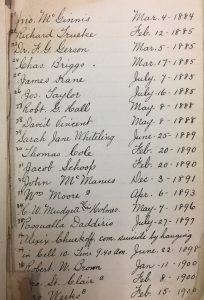 Jno. McGinnis Mar. 4 - 1884
Richard Feb. 12 - 1885
Dr. F. G. Gerson Mar. 5 - 1885
Chas. Briggs. Mar. 17 - 1885
James Kane July. 7 - 1885
Jos. Taylor July. 16 - 1885
Robt. G. Hall May. 8 - 1888
David Vincent May. 8 - 1888
Sarah Jane Whiteling June. 25 - 1889
Thomas Cole Feb. 20 - 1890
Jacob Schoop Feb. 20 - 1890
John McManus Dec. 3 - 1891
Wm Moore Apr. 6 - 1893
H. W. Mudgett Holmes. May. 7 - 1896
Pasqualla Daddario July. 27 - 1897
com. suicide by hanging
in Cell 10. Time 9.40 a.m. June. 22 - 1898
Robert. W. Brown Jan. 11 - 1900
St. Clair Feb. 8 - 1900
Weeks Feb. 15 - 1900